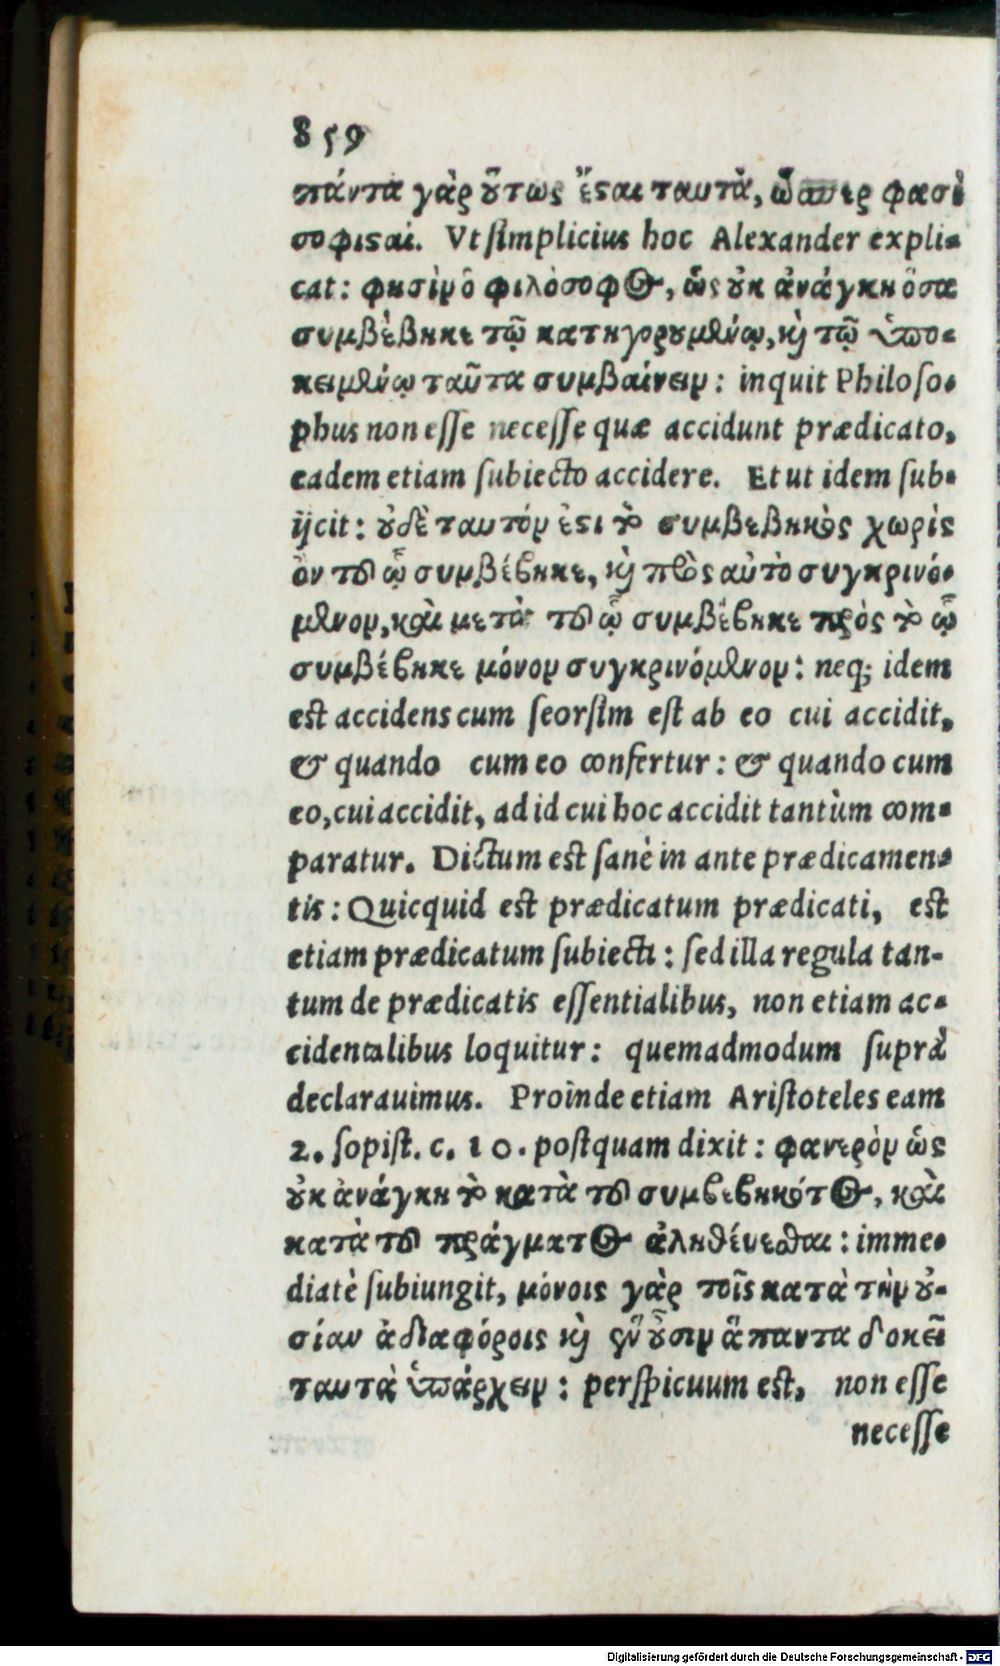 859
πάντα γὰρ οὕτως ἔσαι ταυτὰ, ὥσπερ φασὶ
σοφισαί. Vt simplicius hoc Alexander expli-
cat: φησὶν ὁ φιλόσοφος, ὡς οὐκ ἀνάγκη ὅσα
συμβέβηκε τῷ κατηγορουμένῳ, καὶ τῷ ὑπο-
κειμένῳ ταῦτα συμβαίνειν: inquit Philoso-
phus non esse necesse quæ accidunt prædicato,
eadem etiam subiecto accidere. Et ut idem sub-
ijcit: οὐδὲ ταυτόν ἐστι τὸ συμβεβηκὸς χωρὶς
ὂν τοῦ ᾧ συμβέβηκε, καὶ πρὸς αὐτὸ συγκρινό-
μενον, καὶ μετὰ τοῦ ᾧ συμβέβηκε πρὸς τὸ ᾧ
συμβέβηκε μόνον συγκρινόμενον: neq; idem
est accidens cum seorsim est ab eo cui accidit,
& quando cum eo confertur: & quando cum
eo, cui accidit, ad id cui hoc accidit tantùm com-
paratur. Dictum est sanè in ante prædicamen-
tis: Quicquid est prædicatum prædicati, est
etiam prædicatum subiecti: sed illa regula tan-
tum de prædicatis essentialibus, non etiam ac-
cidentalibus loquitur: quemadmodum suprà
declarauimus. Proinde etiam Aristoteles eam
2. sopist. c. 10. postquam dixit: φανερὸν ὡς
οὐκ ἀνάγκη τὸ κατὰ τοῦ συμβεβηκότος, καὶ
κατὰ τοῦ πράγματος ἀληθεύεσθαι: imme-
diatè subiungit, μόνοις γὰρ τοῖς κατὰ τὴν οὐ-
σίαν ἀδιαφόροις καὶ ἓν οὖσιν ἅπαντα δοκεῖ
ταυτὰ ὑπάρχειν: perspicuum est, non esse
necesse
Digitalisierung gefördert durch die Deutsche Forschungsgemeinschaft - DFG